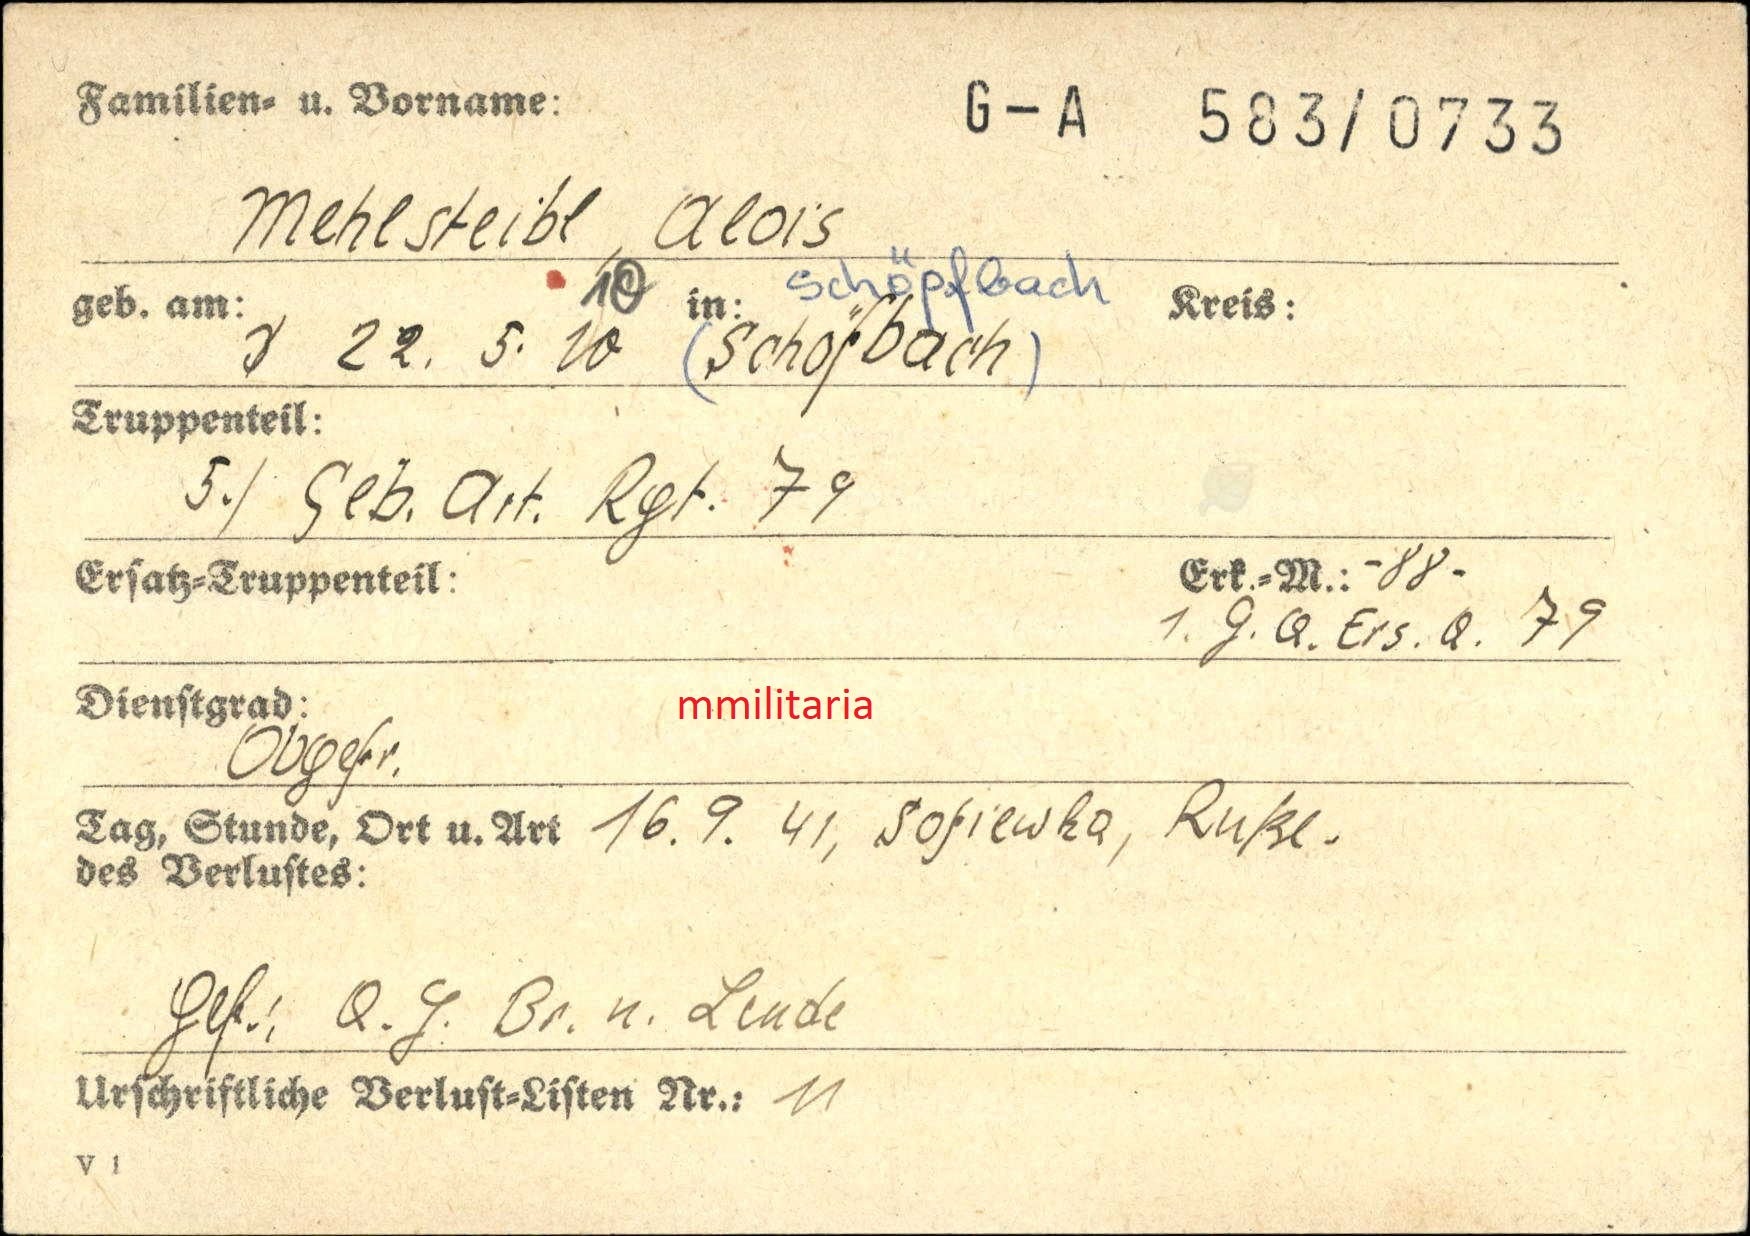 Familien- u. Vorname:
G-A 583/0733
Mehlsteibl, Alois
10 Schöpfbach
geb. am: in: Kreis:
22. 5. 10 (Schöfbach)
Truppenteil:
5./ Geb. Art. Rgt. 79
Ersatz-Truppenteil: Erk.-M.: -88-
1. G. A. Ers. A. 79
mmilitaria
Dienstgrad:
Obgefr.
Tag, Stunde, Ort u. Art 16. 9. 41, Sofiewka,
des Verlustes:
Gef.: A. G. Br. u. Lende
Urschriftliche Verlust-Listen Nr.: 11
V 1